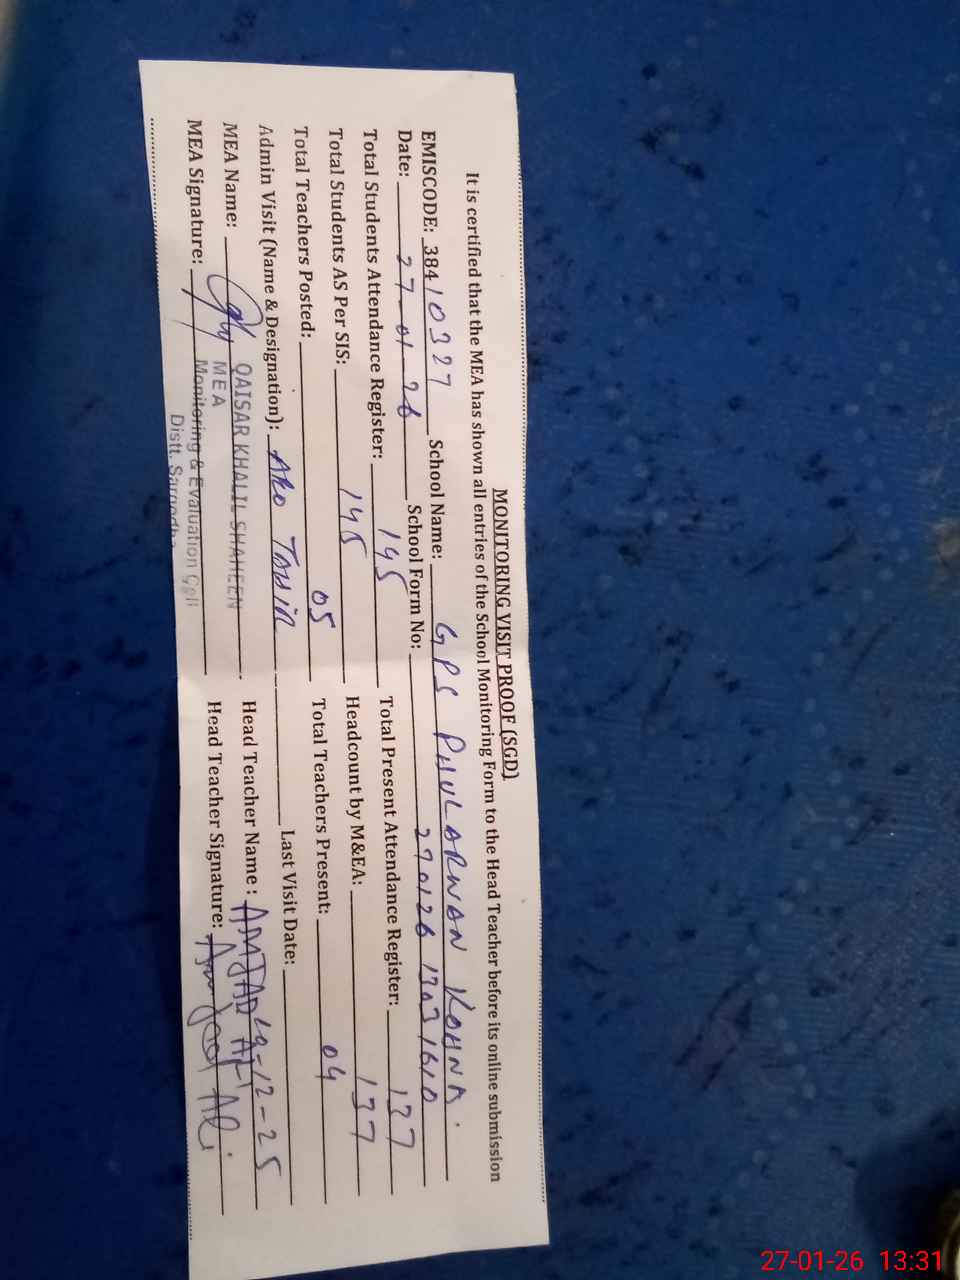 MONITORING VISIT PROOF (SGD)
It is certified that the MEA has shown all entries of the School Monitoring Form to the Head Teacher before its online submission
EMISCODE: 38410327 School Name: GPS PHULARWAN KOHNA.
Date: 27-01-26 School Form No: 270126 1303 1610
Total Students Attendance Register: 145 Total Present Attendance Register: 137
Total Students AS Per SIS: 145 Headcount by M&EA: 137
Total Teachers Posted: 05 Total Teachers Present: 04
Admin Visit (Name & Designation): AEO Last Visit Date: -12-25
MEA Name: QAISAR KHALIL SHAHEEN Head Teacher Name: AMJAD ALI
MEA
MEA Signature: Monitoring & Evaluation Cell Head Teacher Signature: Amjad Ali
Distt. Sargodha
27-01-26 13:31